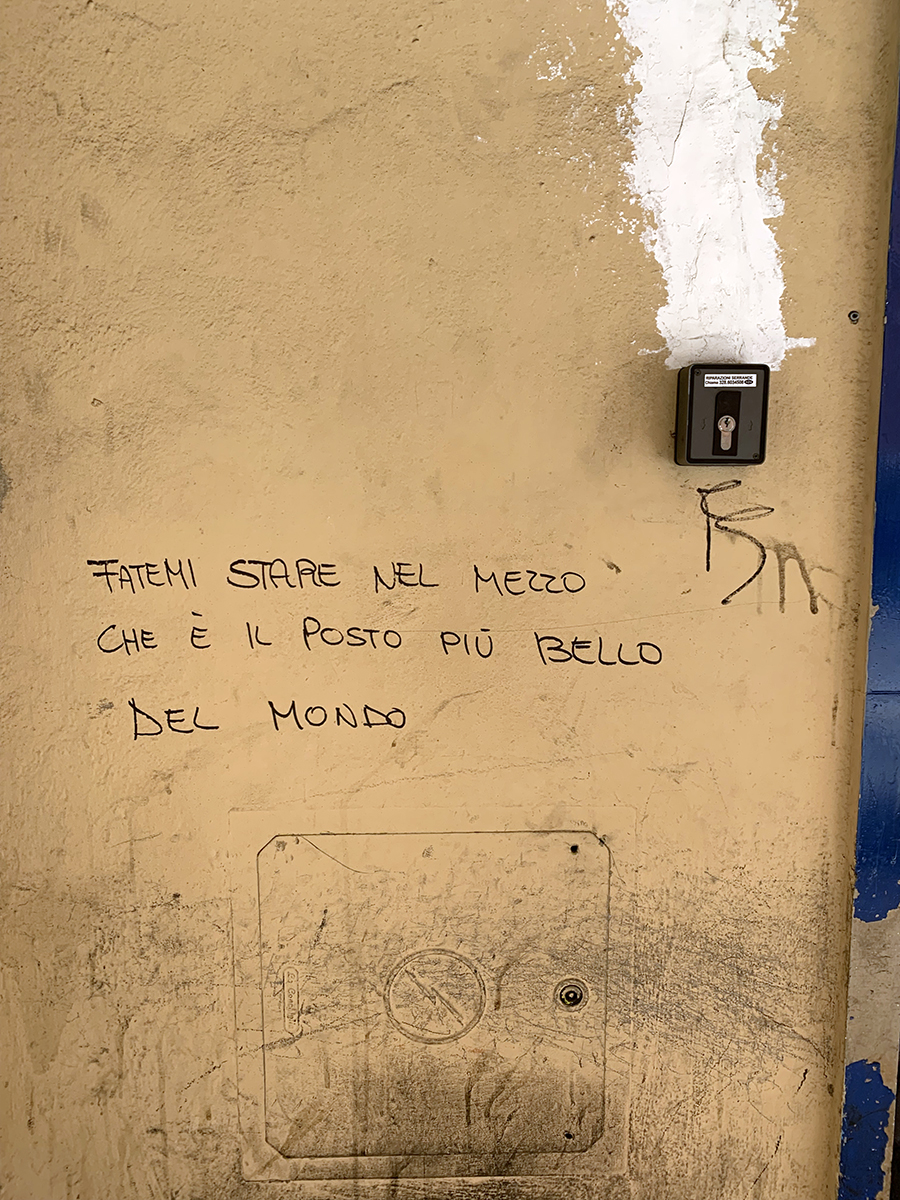 RIPARAZIONI SERRANDE
Chiama 328.8034508
FATEMI STARE NEL MEZZO
CHE È IL POSTO PIÙ BELLO
DEL MONDO